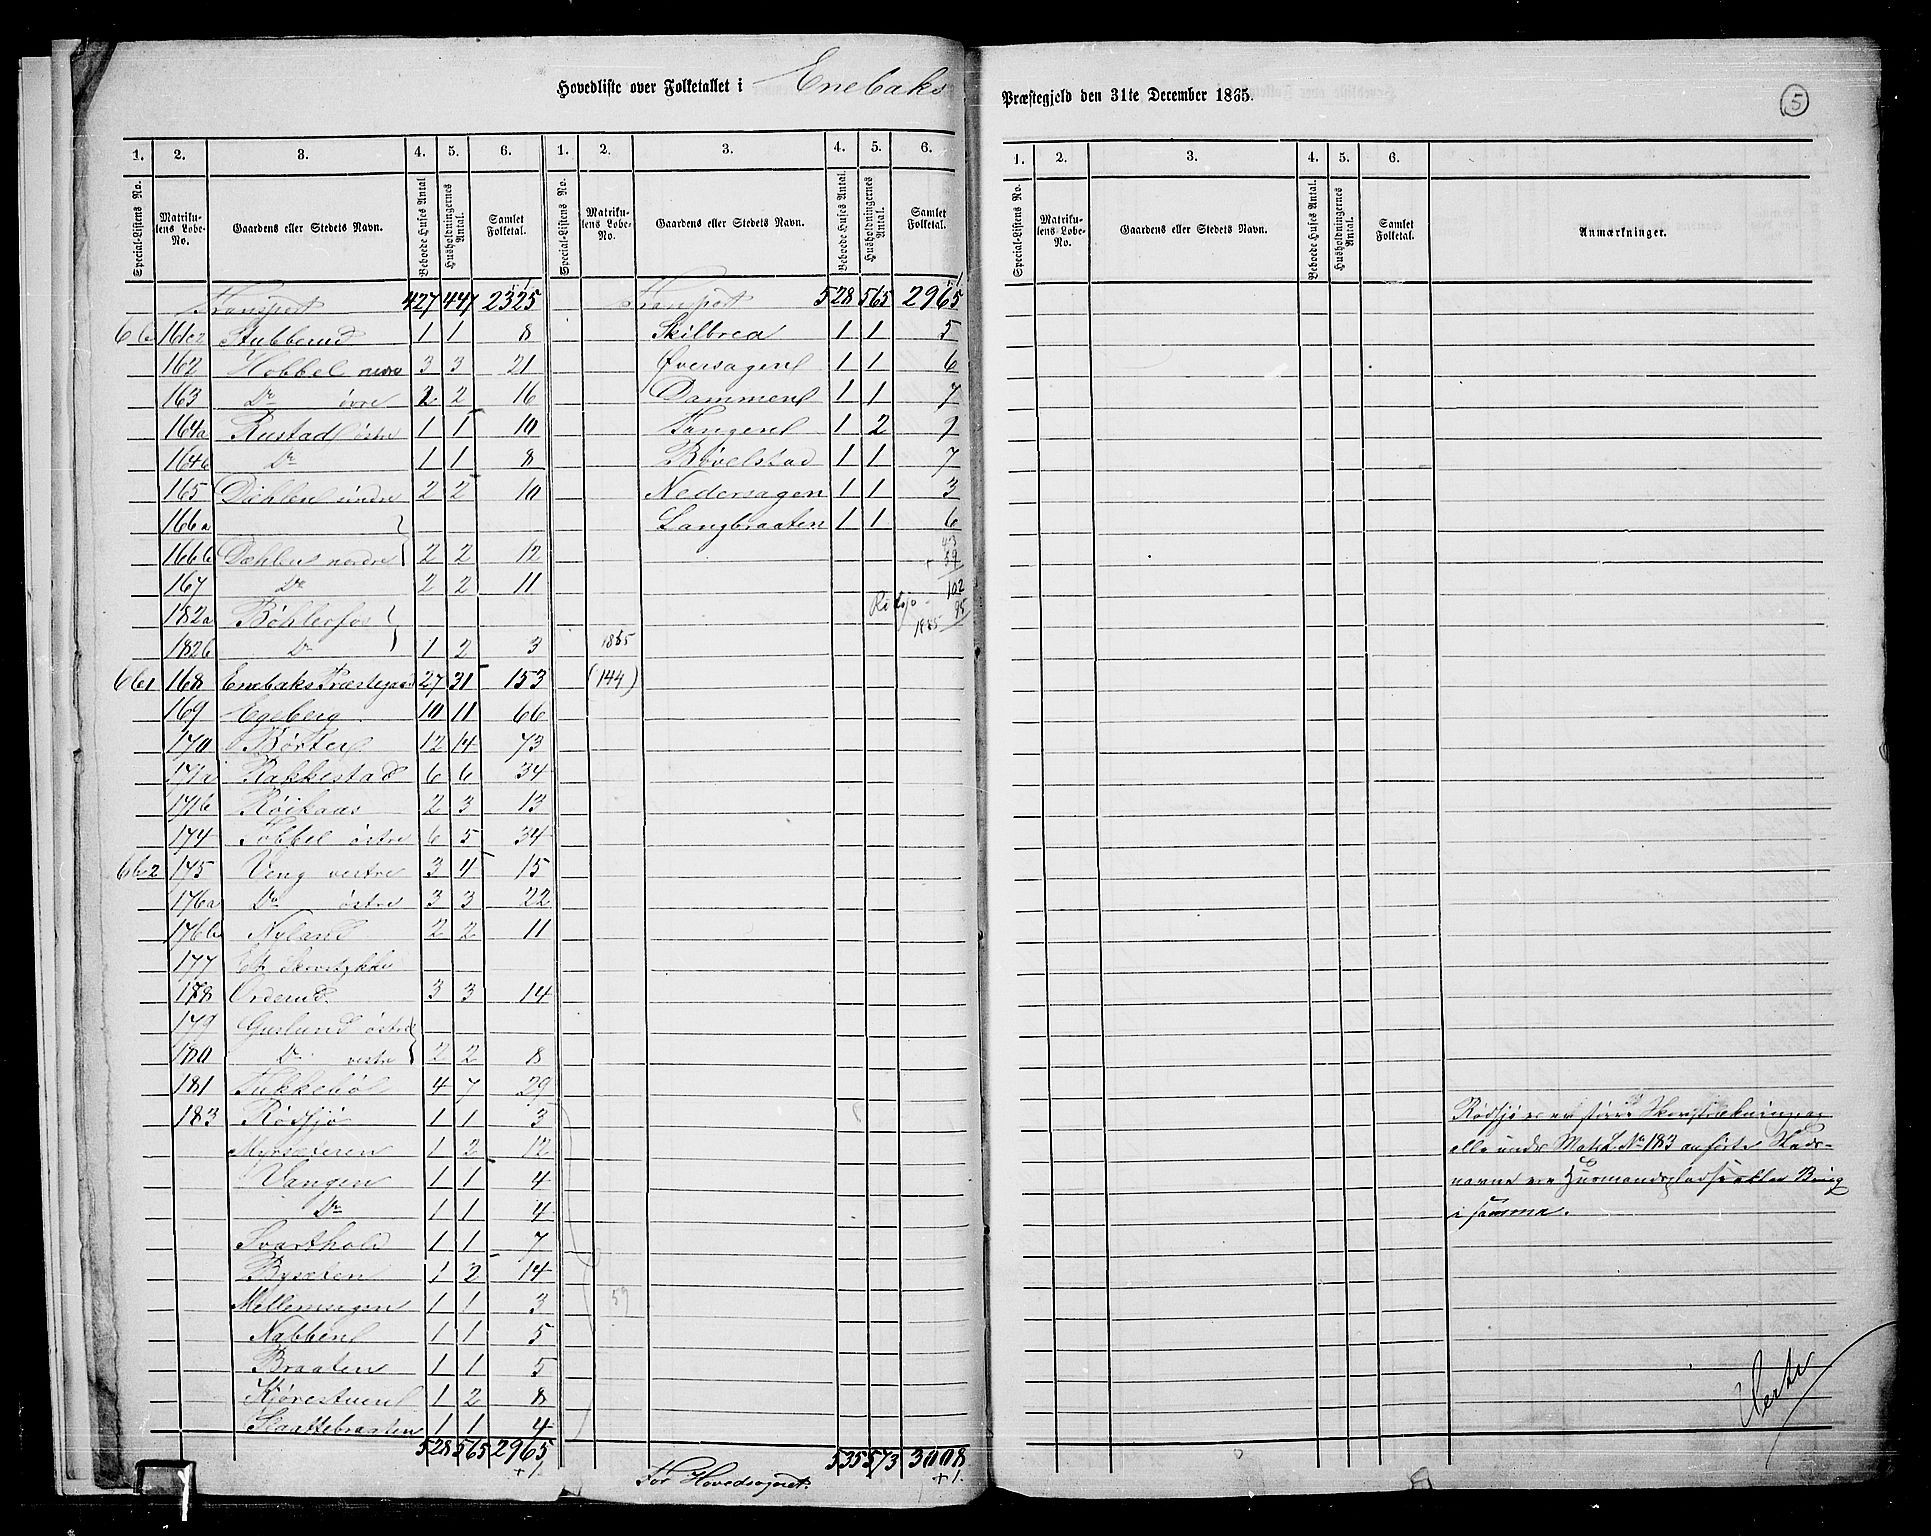 Hovedliste over Folketallet i Enebaks Præstegjeld den 31te December 1865. 5
1. 2. 3. 4. 5. 6. 1. 2. 3. 4. 5. 6.
Special-Listens No. Matrikulens Løbe-No. Gaardens eller Stedets Navn. Beboede Huses Antal Husholdningernes Antal. Samlet Folketal. Special-Listens No. Matrikulens Løbe-No. Gaardens eller Stedets Navn. Beboede Huses Antal. Husholdningernes Antal. Samlet Folketal.
Transport 427 447 2325
66 161c2 Stubberud 1 1 8
162 Hobbel nedre 3 3 21
163 Do øvre 2 2 16
164a Rustad østre 1 1 10
164b Do 1 1 8
165 Dæhlen søndre 2 2 10
166a
166b Dæhlen nordre 2 2 12
167 Do 2 2 11
182a Bøhlerfos
182b Do 1 2 3
661 168 Enebaks Præstegaard 27 31 153
169 Egeberg 10 11 66
170 Børter 12 14 73
171a Rakkestad 6 6 34
171b Røikaas 2 3 13
174 Tobbel østre 6 5 34
662 175 Veng vestre 3 4 15
176a Do østre 3 3 22
176b Nyland 2 2 11
177 Et Skovstykke
178 Orderud 3 3 14
179 Gjeslund østre
180 Do vestre 2 2 8
181 Tukkebøl 4 7 29
183 Rødsjø 1 1 3
Myrsæteren 1 2 12
Vangen 1 1 4
Do 1 1 4
Svarthold 1 1 7
Bysæten 1 2 14
Mellemsagen 1 1 3
Nabben 1 1 5
Braaten 1 1 5
Kjørestuen 1 2 8
Slaattebraaten 1 1 4
528 565 2965
+1.
Transport 528 565 2965
+1
Skilbred 1 1 5
Øversagen 1 1 6
Dammen 1 1 7
Tangen 1 2 9
Bøvelstad 1 1 7
Nedersagen 1 1 3
Langbraaten 1 1 6
43
+ 59
102
Rødsjø 95
1885
1865
(144)
59
535 573 3008
+1.
For Hovedsognet.
1. 2. 3. 4. 5. 6.
Special-Listens No. Matrikulens Løbe-No. Gaardens eller Stedets Navn. Beboede Huses Antal. Husholdningernes Antal. Samlet Folketal. Anmærkninger.
Rødsjø er en større Skovstrækning og
alle under Matr. L. No 183 anførte Steds-
navne ere Husmandspladse eller Brug
i samme.
Verte